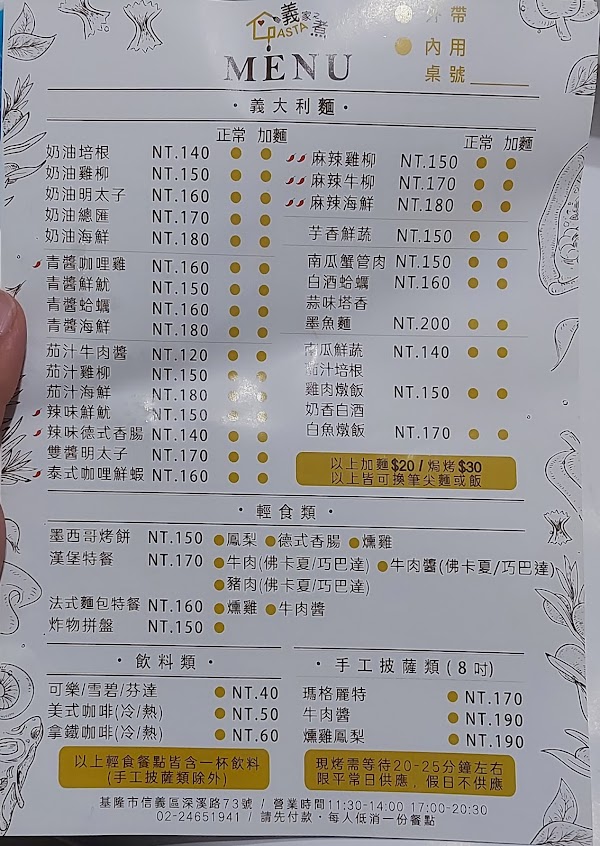 義家ㄗ煮
PASTA
MENU
外帶
內用
桌號
・義大利麵・
正常 加麵
奶油培根 NT.140
奶油雞柳 NT.150
奶油明太子 NT.160
奶油總匯 NT.170
奶油海鮮 NT.180
青醬咖哩雞 NT.160
青醬鮮魷 NT.150
青醬蛤蠣 NT.160
青醬海鮮 NT.180
茄汁牛肉醬 NT.120
茄汁雞柳 NT.150
茄汁海鮮 NT.180
辣味鮮魷 NT.150
辣味德式香腸 NT.140
雙醬明太子 NT.170
泰式咖哩鮮蝦 NT.160
正常 加麵
麻辣雞柳 NT.150
麻辣牛柳 NT.170
麻辣海鮮 NT.180
芋香鮮蔬 NT.150
南瓜蟹管肉 NT.150
白酒蛤蠣 NT.160
蒜味塔香
墨魚麵 NT.200
南瓜鮮蔬 NT.140
茄汁培根
雞肉燉飯 NT.150
奶香白酒
白魚燉飯 NT.170
以上加麵$20/焗烤$30
以上皆可換筆尖麵或飯
・輕食類・
墨西哥烤餅 NT.150 鳳梨 德式香腸 燻雞
漢堡特餐 NT.170 牛肉(佛卡夏/巧巴達) 牛肉醬(佛卡夏/巧巴達)
豬肉(佛卡夏/巧巴達)
法式麵包特餐 NT.160 燻雞 牛肉醬
炸物拼盤 NT.150
・飲料類・
可樂/雪碧/芬達 NT.40
美式咖啡(冷/熱) NT.50
拿鐵咖啡(冷/熱) NT.60
以上輕食餐點皆含一杯飲料
(手工披薩類除外)
・手工披薩類(8吋)
瑪格麗特 NT.170
牛肉醬 NT.190
燻雞鳳梨 NT.190
現烤需等待20-25分鐘左右
限平常日供應，假日不供應
基隆市信義區深溪路73號 / 營業時間11:30-14:00 17:00-20:30
02-24651941 / 請先付款・每人低消一份餐點